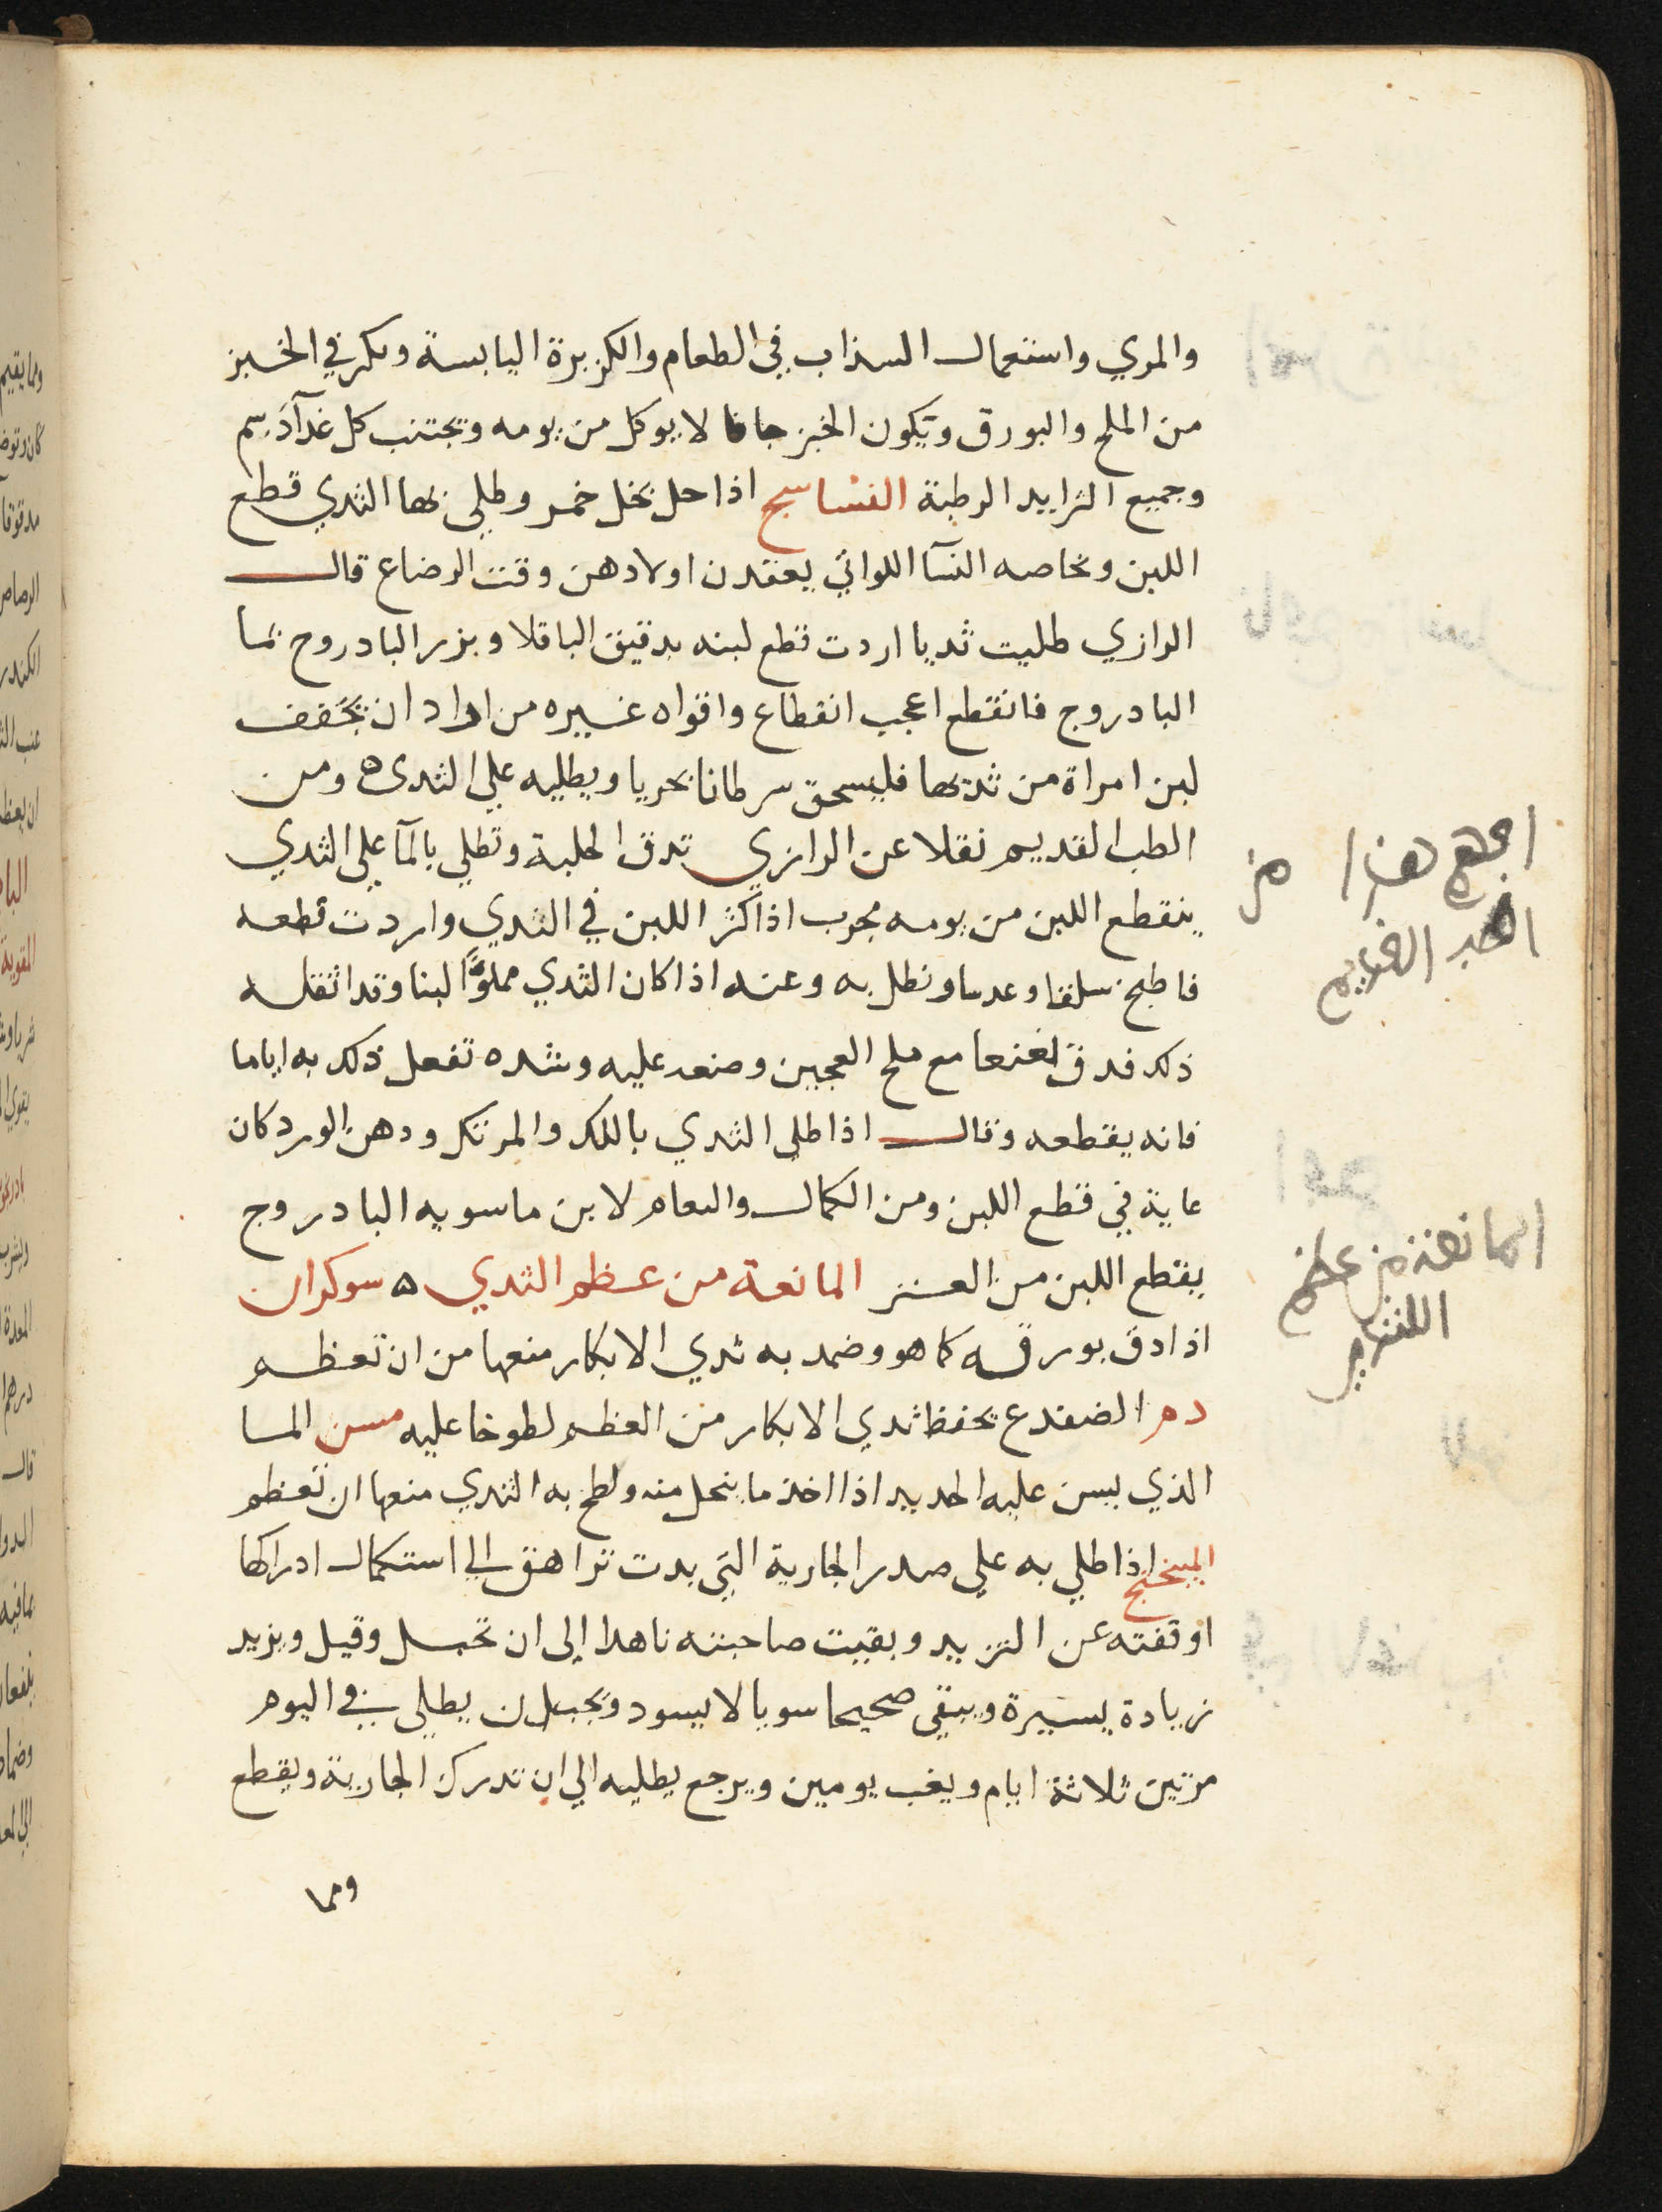 والمري واستعمال السذاب في الطعام والكزبرة اليابسة ويكثر في الخبز
من الملح والبورق ويكون الخبز جافا لا يوكل من يومه ويجتنب كل غدآ دسم
وجميع الثرايد الرطبة النشاسبج اذا حل بخل خمر وطلي بها الثدي قطع
اللبن وبخاصه النسآ اللواتي يفقدن اولادهن وقت الرضاع قال
الرازي طليت ثديا اردت قطع لبنه بدقيق الباقلا وبزر البادروج بما
البادروج فانقطع اعجب انقطاع واقواه غيره من اراد ان يجفف
لبن امراة من ثديها فليسحق سرطانا بحريا ويطليه علي الثدي ه ومن
الطب القديم نقلا عن الرازي تدق الحلبة وتطلي بالمآ علي الثدي
ينقطع اللبن من يومه مجرب اذا كثر اللبن في الثدي واردت قطعه
فاطبخ سلقا وعدسا ونطل به وعنه اذا كان الثدي مملوًا لبنا وقد اثقله
ذلك فدق نعنعا مع ملح العجين وضعه عليه وشده تفعل ذلك به اياما
فانه يقطعه وقال اذا طلي الثدي باللك والمرتك ودهن الورد كان
غاية في قطع اللبن ومن الكمال والتمام لابن ماسويه البادروج
يقطع اللبن من العنز المانعة من عظم الثدي ه سوكران
اذا دق بورقه كما هو وضمد به ثدي الابكار منعها من ان تعظم
دم الضفدع يحفظ ثدي الابكار من العظم لطوخا عليه مسن الما
الذي يسن عليه الحديد اذا اخذ ما ينحل منه ولطخ به الثدي منعها ان تعظم
الميبختج اذا طلي به علي صدر الجارية التي بدت تراهق الي استكمال ادراكها
اوقفته عن التزيد وبقيت صاحبته ناهدا الي ان تحبل وقيل ويزيد
زيادة يسيرة ويبقي صحيحا سويا لا يسود ويجب ان يطلي في اليوم
مرتين ثلاثة ايام ويغب يومين ويرجع يطليه الي ان تدرك الجارية ويقطع
ومما
هذا من
القديم
المانعة من عظم
الثدي